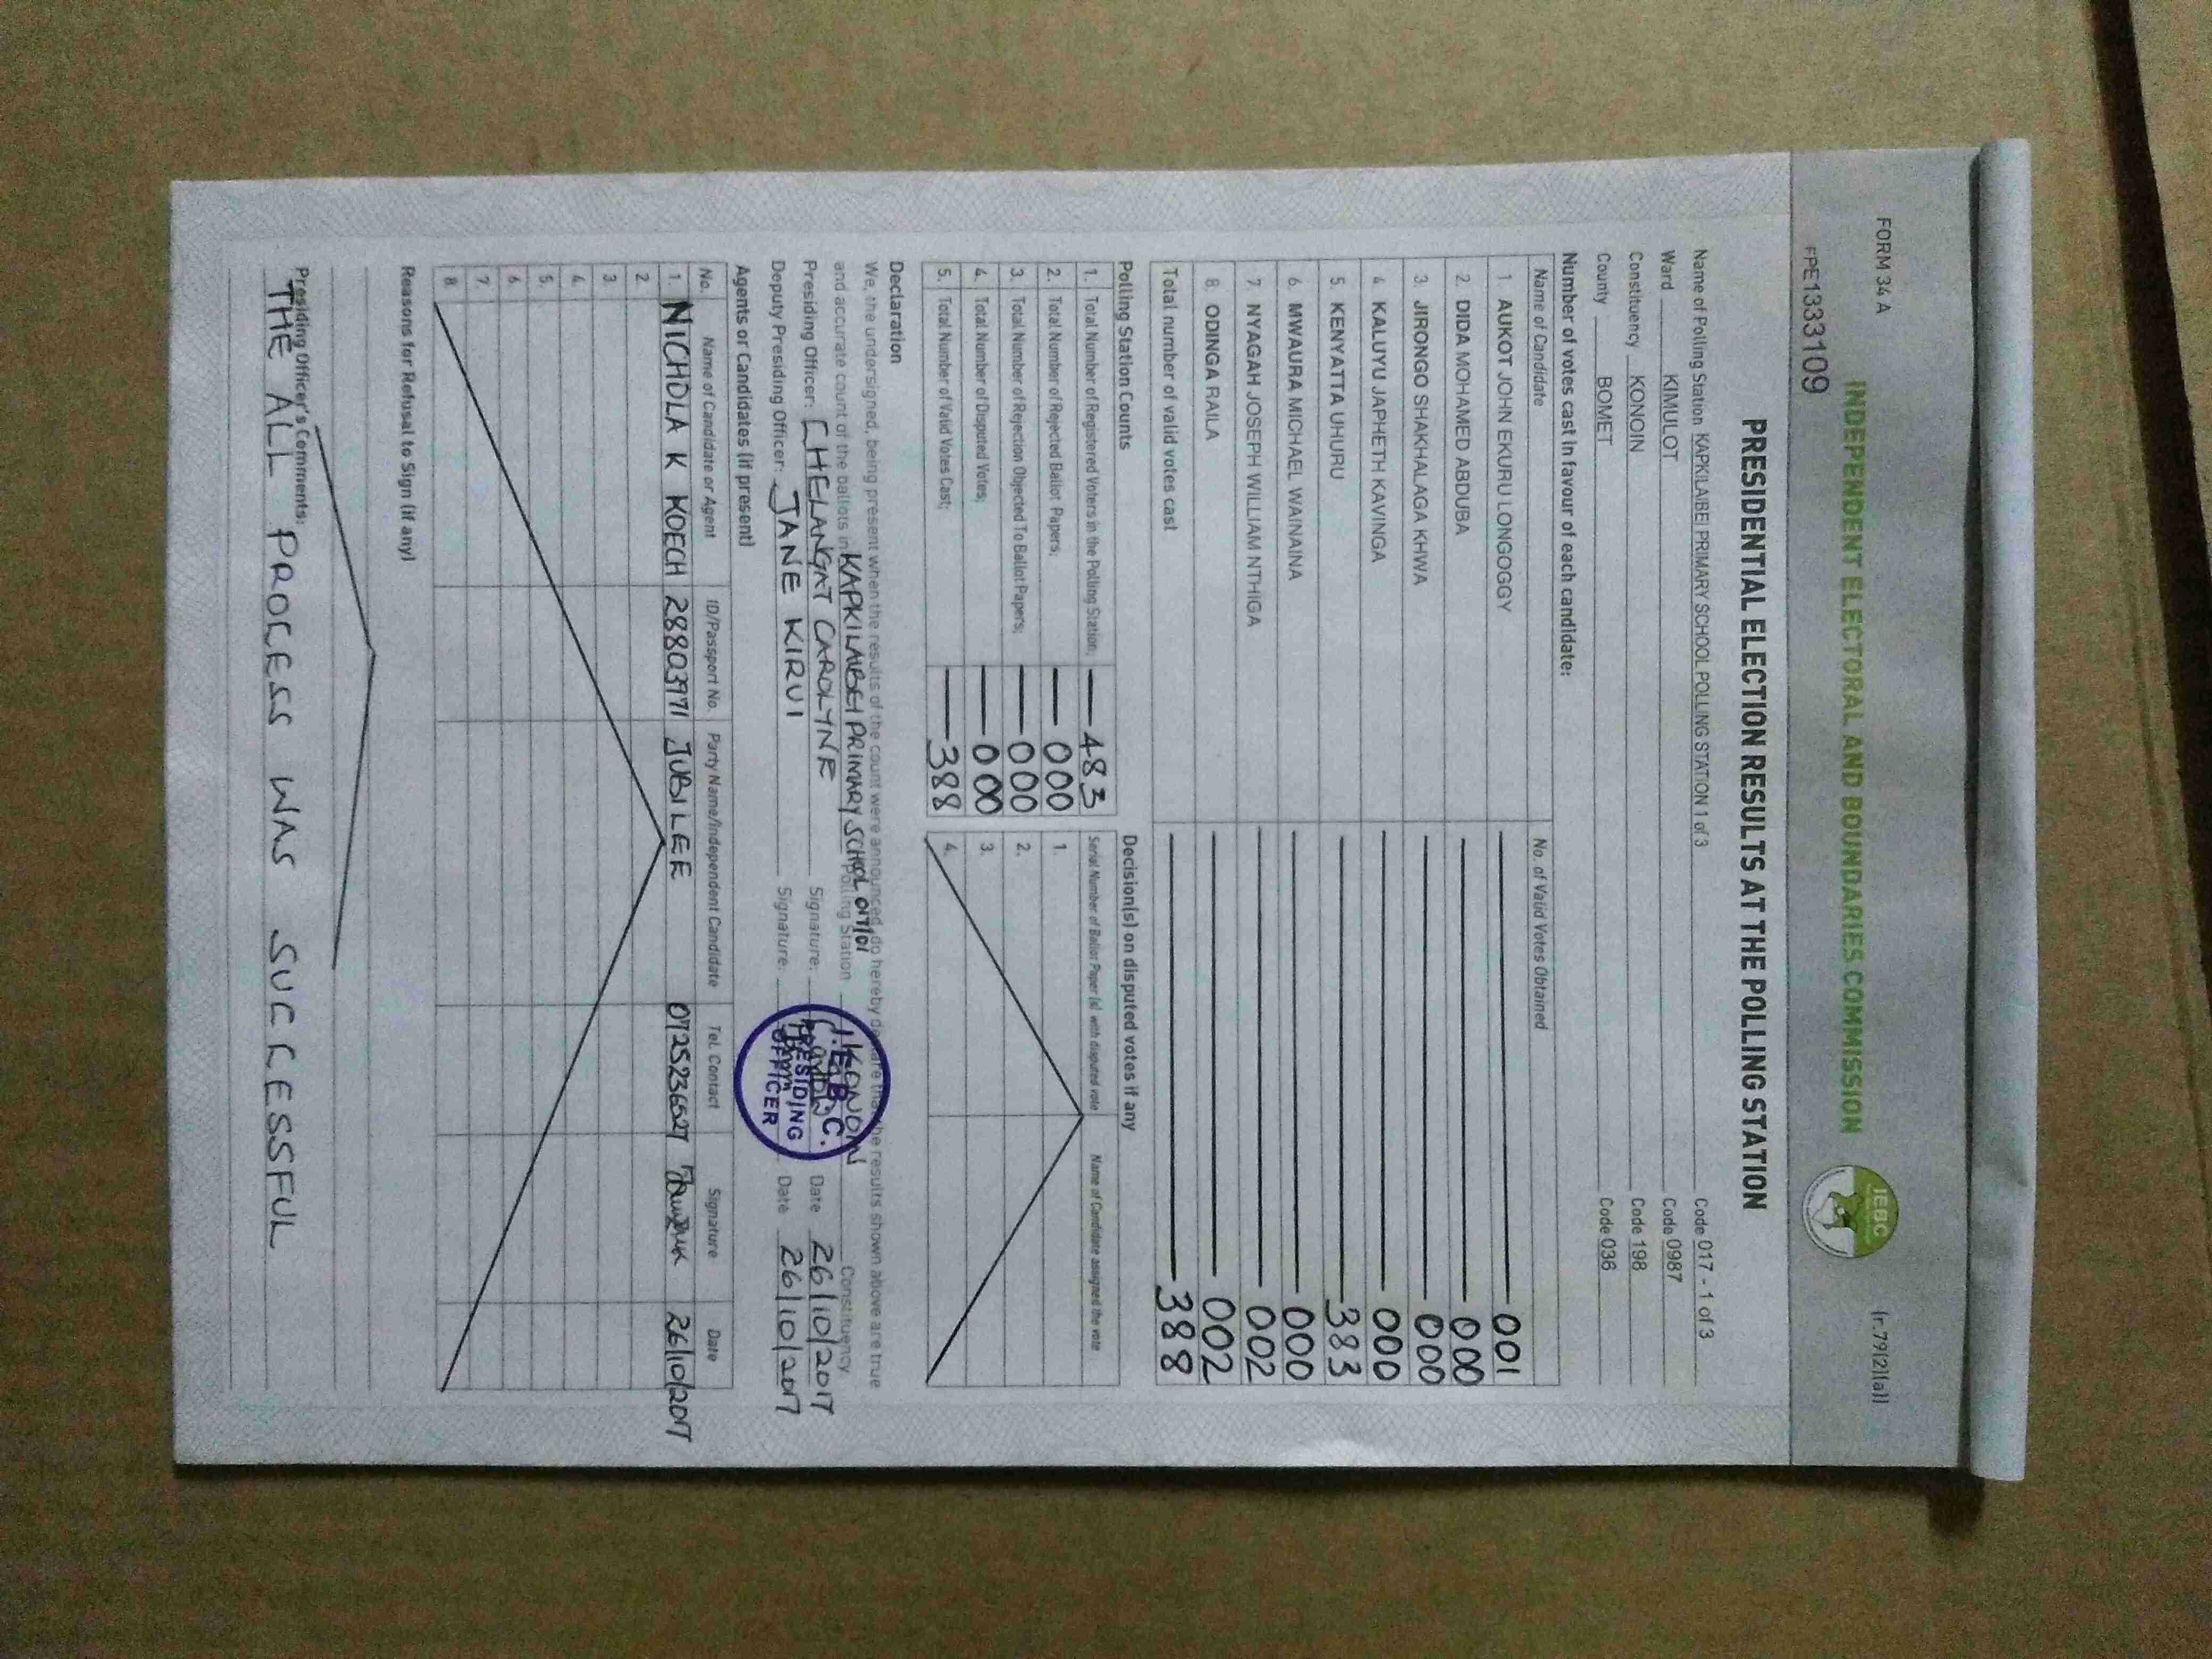 FORM 34 A
(r.79(2)(a))
INDEPENDENT ELECTORAL AND BOUNDARIES COMMISSION
IEBC
FPE1333109
PRESIDENTIAL ELECTION RESULTS AT THE POLLING STATION
Name of Polling Station KAPKILAIBEI PRIMARY SCHOOL POLLING STATION 1 of 3 Code 017 - 1 of 3
Ward KIMULOT Code 0987
Constituency KONOIN Code 198
County BOMET Code 036
Number of votes cast in favour of each candidate:
Name of Candidate No. of Valid Votes Obtained
1. AUKOT JOHN EKURU LONGOGGY 001
2. DIDA MOHAMED ABDUBA 000
3. JIRONGO SHAKHALAGA KHWA 000
4. KALUYU JAPHETH KAVINGA 000
5. KENYATTA UHURU 383
6. MWAURA MICHAEL WAINAINA 000
7. NYAGAH JOSEPH WILLIAM NTHIGA 002
8. ODINGA RAILA 002
Total number of valid votes cast 388
Polling Station Counts
1. Total Number of Registered Voters in the Polling Station; 483
2. Total Number of Rejected Ballot Papers; 000
3. Total Number of Rejection Objected To Ballot Papers; 000
4. Total Number of Disputed Votes; 000
5. Total Number of Valid Votes Cast; 388
Decision(s) on disputed votes if any
Serial Number of Ballot Paper (s) with disputed vote Name of Candidate assigned the vote
1.
2.
3.
4.
Declaration
We, the undersigned, being present when the results of the count were announced, do hereby declare that the results shown above are true
and accurate count of the ballots in KAPKILAIBEI PRIMARY SCHOOL 017/01 Polling Station KONOIN Constituency
Presiding Officer: CHELANGAT CAROLYNE Signature: Date 26/10/2017
Deputy Presiding Officer: JANE KIRUI Signature: Date 26/10/2017
I.E.B.C.
PRESIDING
OFFICER
Agents or Candidates (if present)
No. Name of Candidate or Agent ID/Passport No. Party Name/Independent Candidate Tel. Contact Signature Date
1. NICHOLA K KOECH 28803971 JUBILEE 0725236527 26/10/2017
2
3
4
5
6
7
8
Reasons for Refusal to Sign (if any)
Presiding Officer's Comments:
THE ALL PROCESS WAS SUCCESSFUL